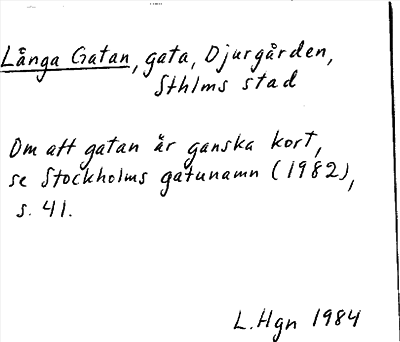 Långa Gatan, gata, Djurgården,
Sthlms stad
Om att gatan är ganska kort,
se Stockholms gatunamn (1982),
s. 41.
L. Hgn 1984